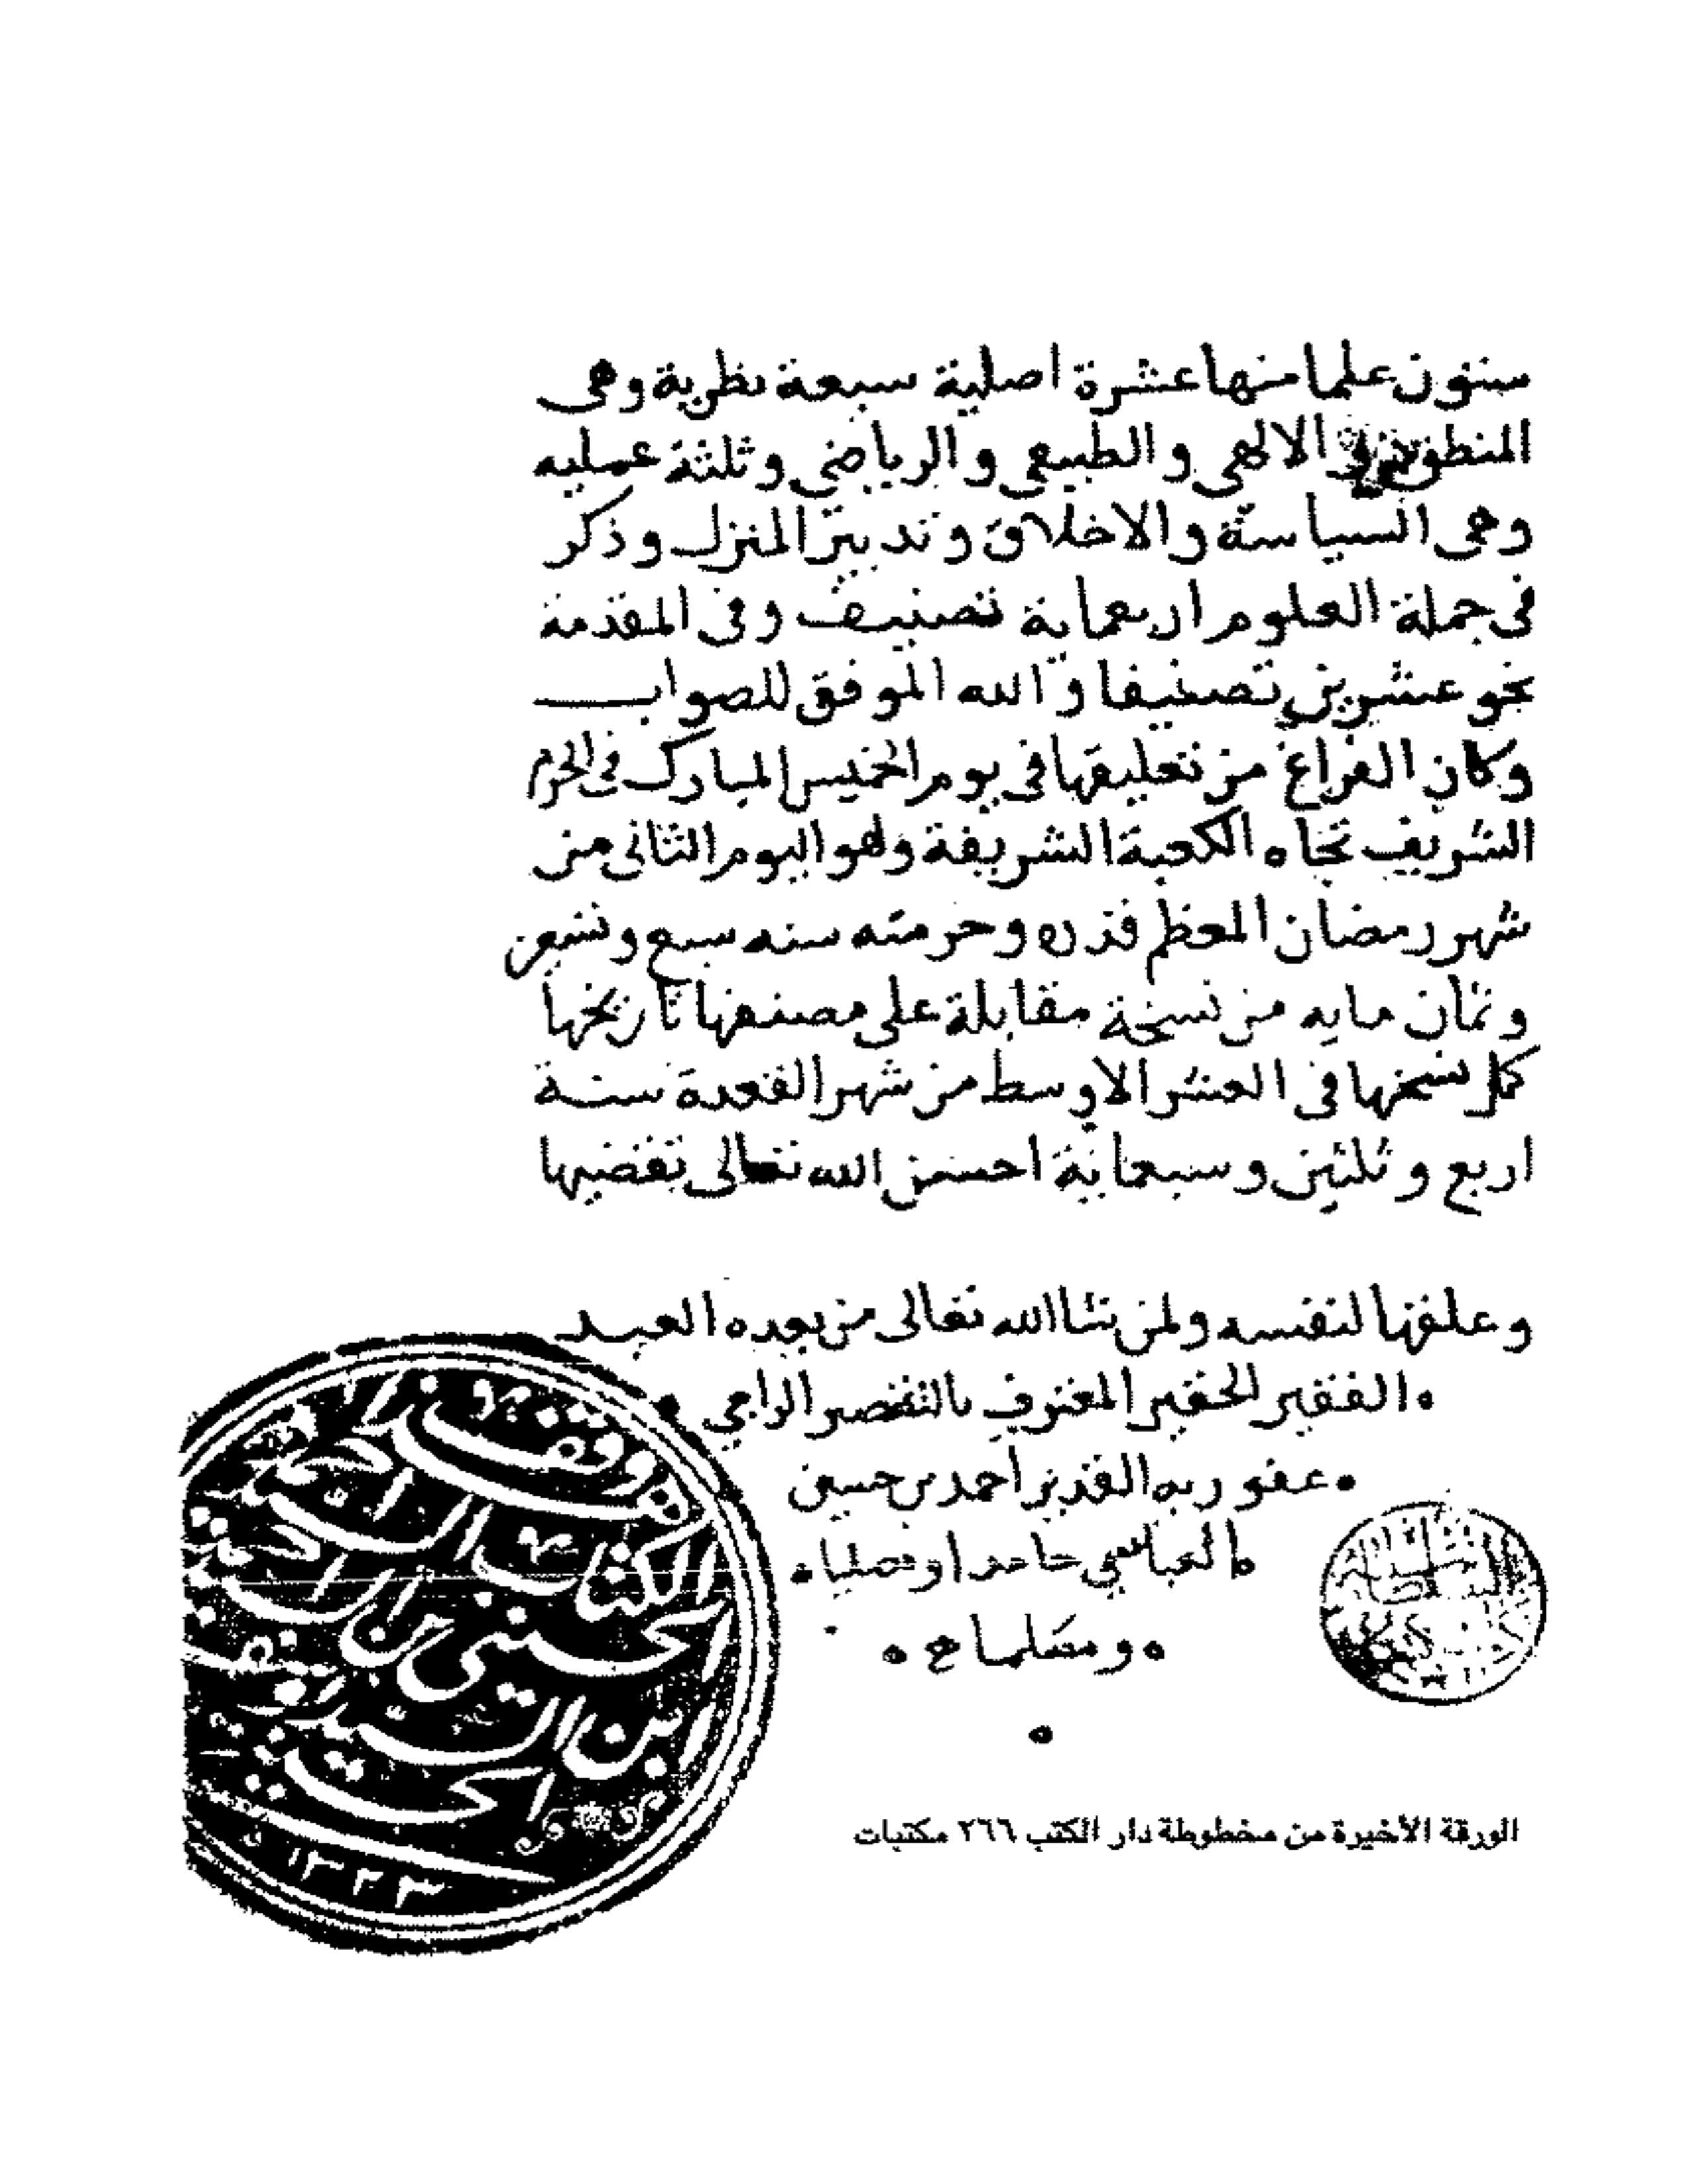 ستون علما منها عشرة اصلية سبعة نظرية وهى
المنطق الالهى والطبيعى والرياضى وثلثة عمليه
وهى السياسة والاخلاق وتدبير المنزل وذكر
فى جملة العلوم اربعماية تصنيف وفى المقدمة
نحو عشرين تصنيفا والله الموفق للصواب
وكان الفراغ من تعليقها فى يوم الخميس المبارك فى الحرم
الشريف تجاه الكعبة الشريفة وهو اليوم الثانى من
شهر رمضان المعظم قدره وحرمته سنه سبع وتسعين
وثمان مايه من نسخة مقابلة على مصنفها تاريخها
كمل نسخها فى العشر الاوسط من شهر القعدة سنة
اربع وثلثين وسبعماية احسن الله تعالى تقضيها
وعلقها لنفسه ولمن شا الله تعالى من بعده العبد
الفقير الحقير المعترف بالتقصير الراجى
عفو ربه القدير احمد بن حسين
العباسي حامدا ومصليا
ومسلما
وقف
الكتاب السيد احمد
الحسينى بن السيد
ابن السيد
١٣٢٣
الورقة الأخيرة من مخطوطة دار الكتب ٢٦٦ مكتبات